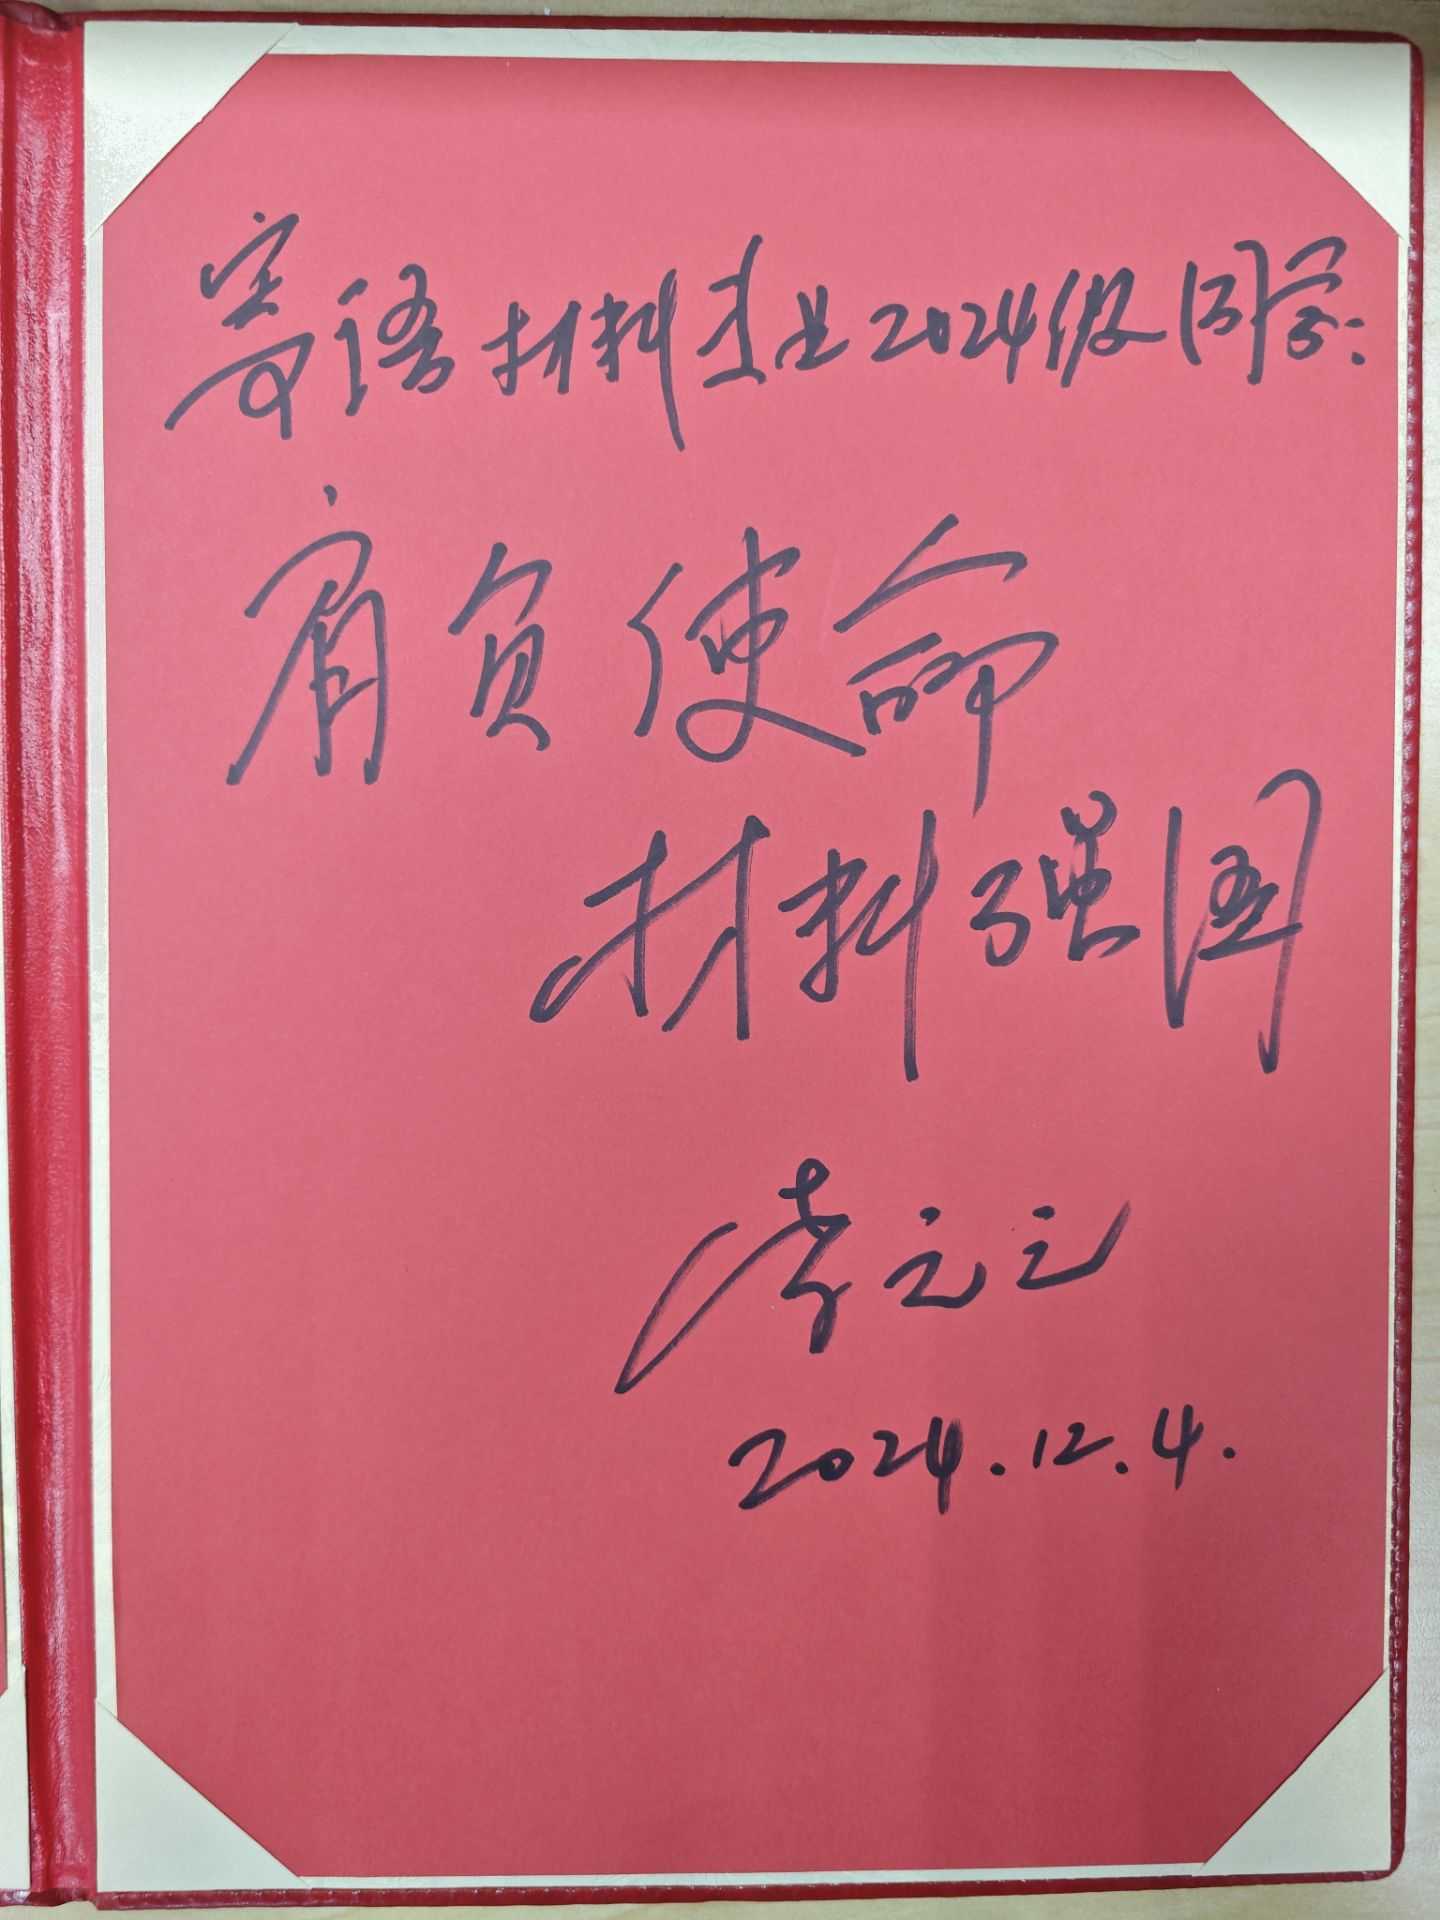 寄语材料专业2024级同学:
肩负使命
材料强国
李元元
2024.12.4.